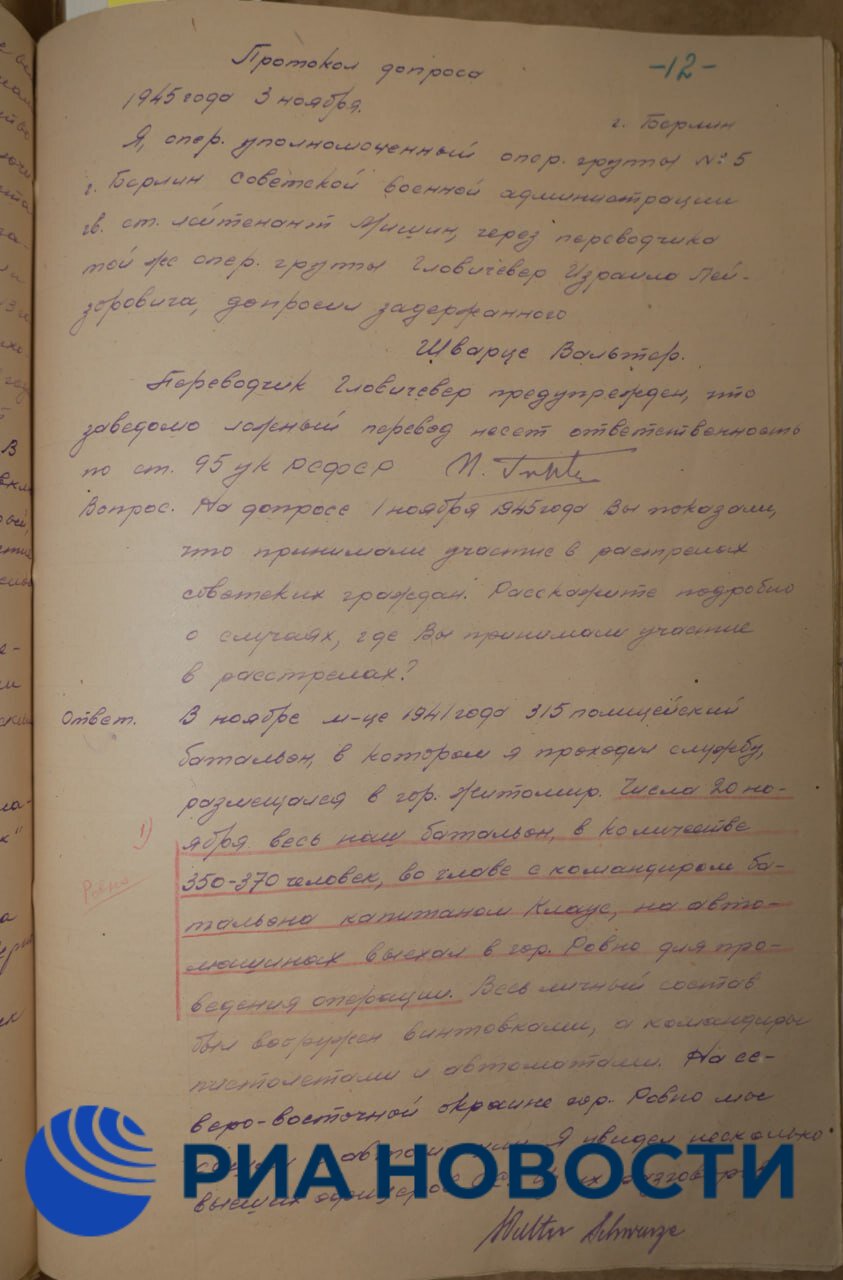 Протокол допроса
-12-
1945 года 3 ноября.
г. Берлин
Я, опер. уполномоченный опер. группы № 5
г. Берлин Советской военной администрации
гв. ст. лейтенант Мишин, через переводчика
той же опер. группы Гловичевер Израила Лей-
зоровича, допросил задержанного
Шварце Вальтер.
Переводчик Гловичевер предупрежден, что
заведомо ложный перевод несет ответственность
по ст. 95 ук РСФСР
Вопрос. На допросе 1 ноября 1945 года Вы показали,
что принимали участие в растрелах
советских граждан. Расскажите подробно
о случаях, где Вы принимали участие
в расстрелах?
Ответ. В ноябре м-це 1941 года 315 полицейский
батальон, в котором я проходил службу,
размещался в гор. Житомир. Числа 20 но-
1) ября весь наш батальон, в количестве
Ровно 350-370 человек, во главе с командиром ба-
тальона капитаном Клаус, на авто-
машинах выехал в гор. Ровно для про-
ведения операции. Весь личный состав
был вооружен винтовками, а командиры
пистолетами и автоматами. На се-
веро-восточной окраине гор. Ровно мы
Я увидел несколько
высших офицеров
РИА НОВОСТИ
Walter Schwarze